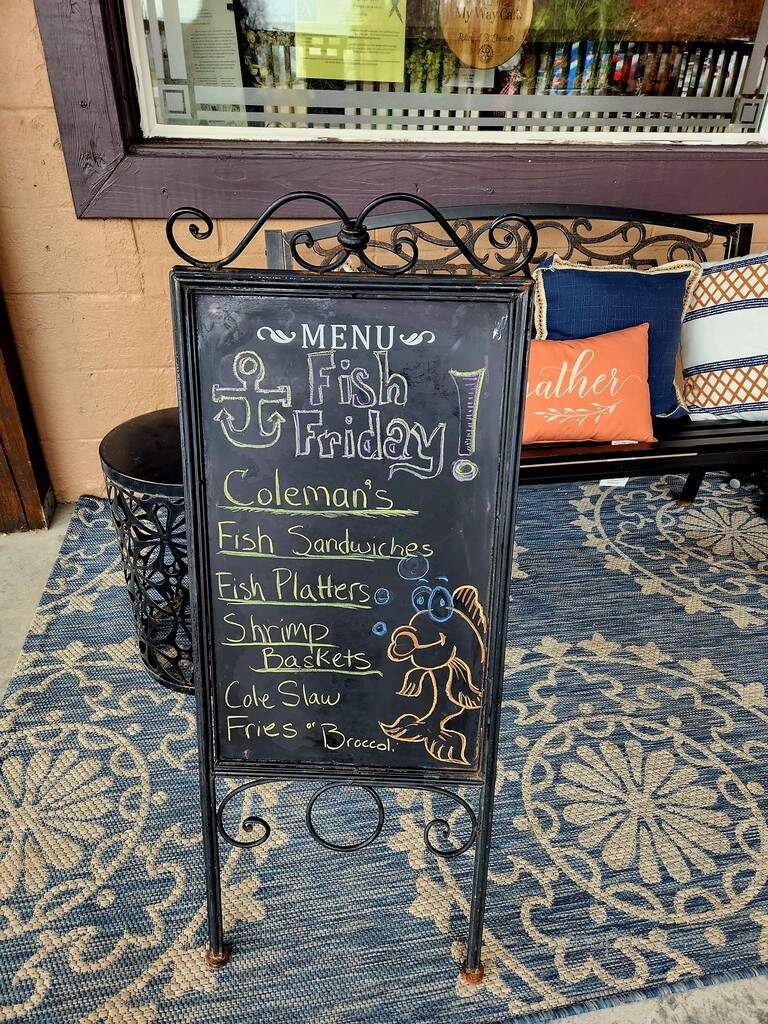 My Way Cafe
MENU
Fish
Friday!
Coleman's
Fish Sandwiches
Fish Platters
Shrimp
Baskets
Cole Slaw
Fries or Broccoli
ather